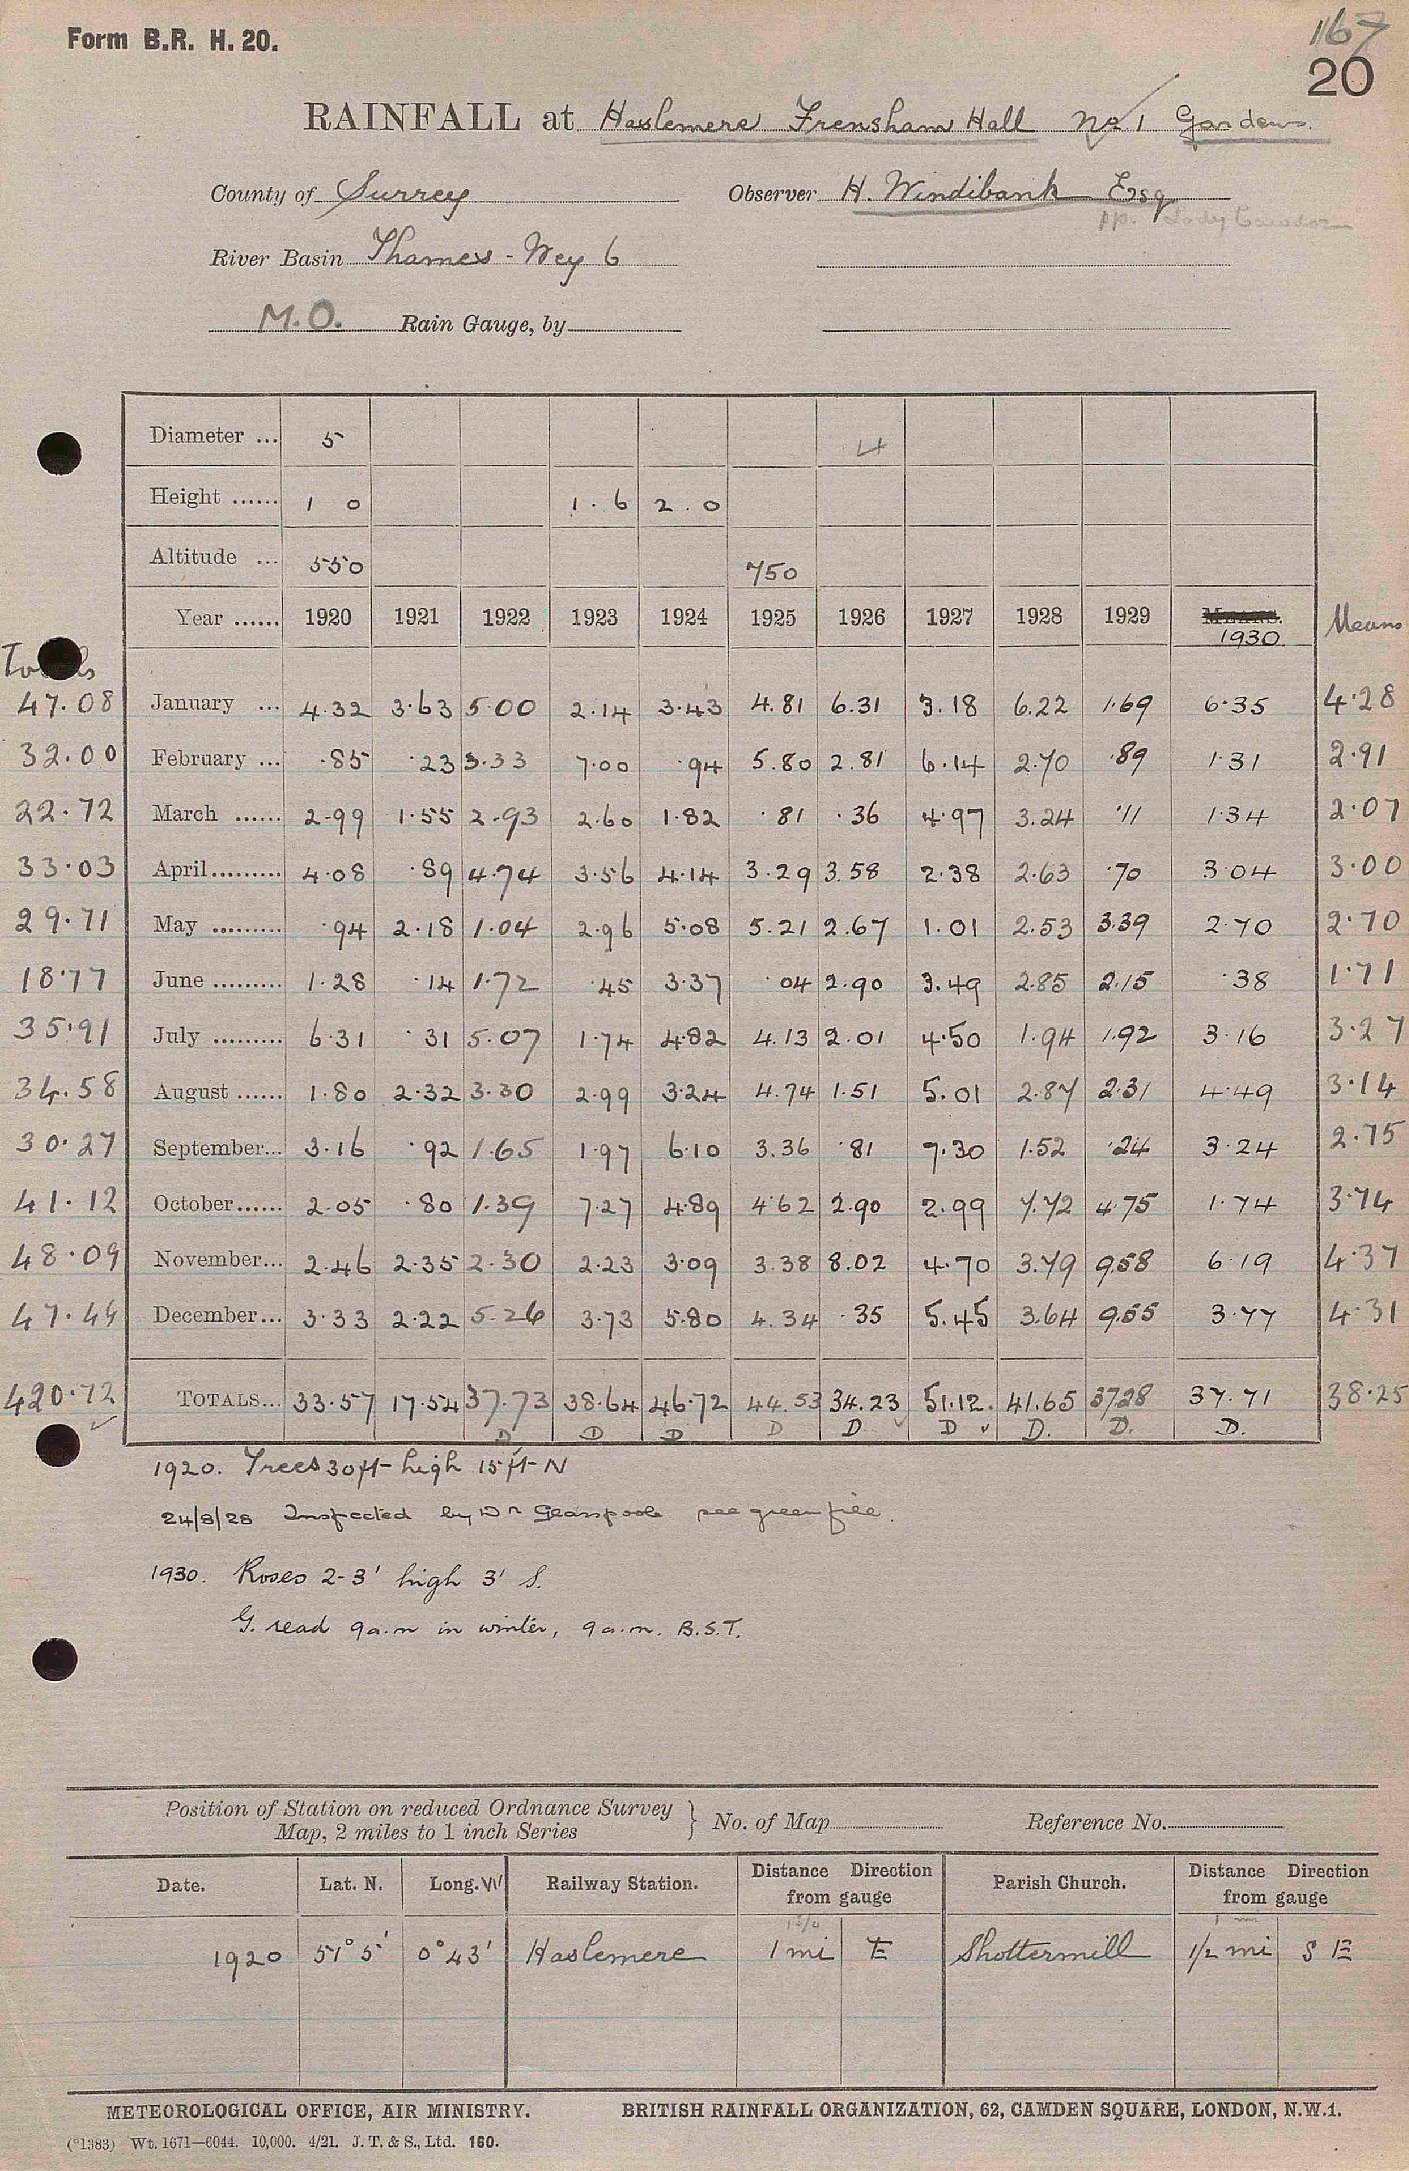 Form B.R. H. 20.
167
20
RAINFALL at Haslemere Frensham Hall No 1 Gardens
County of Surrey Observer H. Windibank Esq
pp. Lady
River Basin Thames - Wey 6
M.O. Rain Gauge, by
Diameter ... 5 4
Height ...... 1 0 1.6 2.0
Altitude ... 550 750
Year ...... 1920 1921 1922 1923 1924 1925 1926 1927 1928 1929 1930 Means
Totals
47.08 January ... 4.32 3.63 5.00 2.14 3.43 4.81 6.31 3.18 6.22 1.69 6.35 4.28
32.00 February ... .85 .23 3.33 7.00 .94 5.80 2.81 6.14 2.70 .89 1.31 2.91
22.72 March ...... 2.99 1.55 2.93 2.60 1.82 .81 .36 4.97 3.24 .11 1.34 2.07
33.03 April......... 4.08 .89 4.74 3.56 4.14 3.29 3.58 2.38 2.63 .70 3.04 3.00
29.71 May ......... .94 2.18 1.04 2.96 5.08 5.21 2.67 1.01 2.53 3.39 2.70 2.70
18.77 June ......... 1.28 .14 1.72 .45 3.37 .04 2.90 3.49 2.85 2.15 .38 1.71
35.91 July ......... 6.31 .31 5.07 1.74 4.82 4.13 2.01 4.50 1.94 1.92 3.16 3.27
34.58 August ...... 1.80 2.32 3.30 2.99 3.24 4.74 1.51 5.01 2.87 2.31 4.49 3.14
30.27 September... 3.16 .92 1.65 1.97 6.10 3.36 .81 7.30 1.52 .24 3.24 2.75
41.12 October...... 2.05 .80 1.39 7.27 4.89 4.62 2.90 2.99 7.72 4.75 1.74 3.74
48.09 November... 2.46 2.35 2.30 2.23 3.09 3.38 8.02 4.70 3.79 9.58 6.19 4.37
47.44 December... 3.33 2.22 5.26 3.73 5.80 4.34 .35 5.45 3.64 9.55 3.77 4.31
420.72 TOTALS... 33.57 17.54 37.73 38.64 46.72 44.53 34.23 51.12 41.65 37.28 37.71 38.25
D D D D D D D. D. D.
1920. Trees 30ft high 15 ft N
24/8/28 Inspected by Dr Glasspoole see green file.
1930. Roses 2-3' high 3' S.
G. read 9 a.m in winter, 9 a.m. B.S.T.
Position of Station on reduced Ordnance Survey
Map, 2 miles to 1 inch Series } No. of Map Reference No.
Date. Lat. N. Long. W Railway Station. Distance Direction from gauge Parish Church. Distance Direction from gauge
1920 51° 5' 0° 43' Haslemere 1 mi E Shottermill 1/2 mi S E
METEOROLOGICAL OFFICE, AIR MINISTRY. BRITISH RAINFALL ORGANIZATION, 62, CAMDEN SQUARE, LONDON, N.W.1.
(*1383) Wt. 1671—6044. 10,000. 4/21. J. T. & S., Ltd. 160.